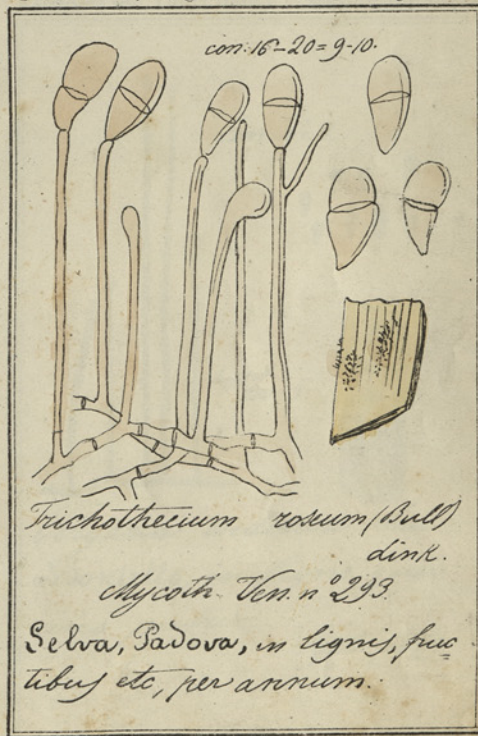 con: 16-20 = 9-10.
Trichothecium roseum (Bull)
Link.
Mycoth. Ven. n° 293
Selva, Padova, in lignis, fruc=
tibus etc, per annum.